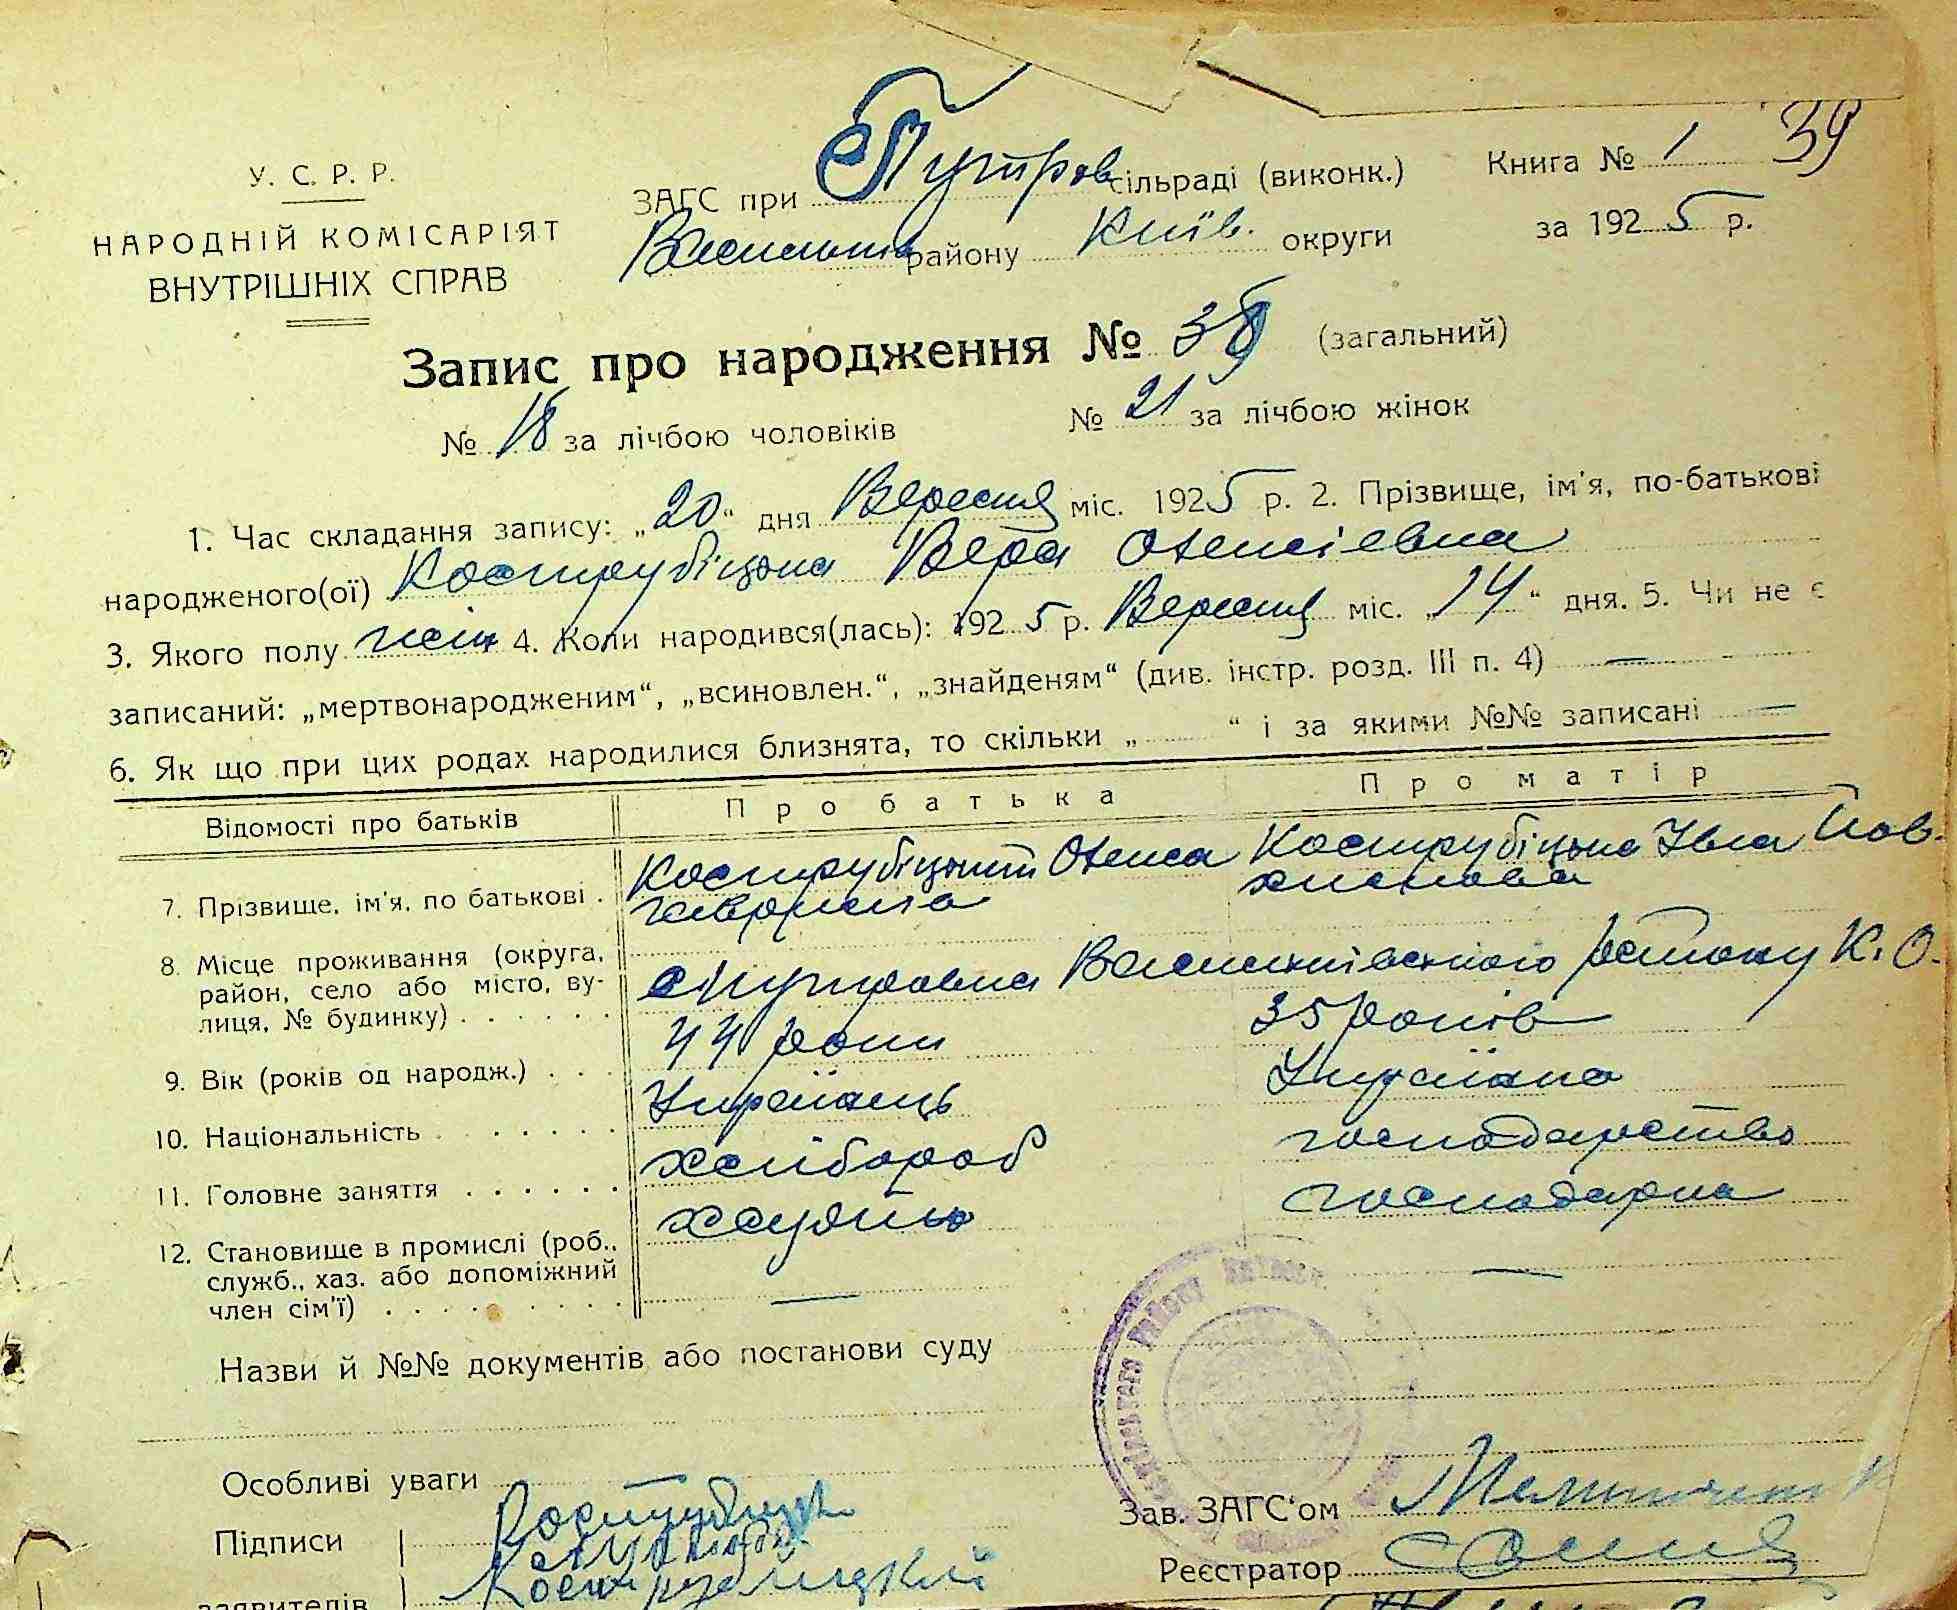 39
У. С. Р. Р.
НАРОДНІЙ КОМІСАРІЯТ
ВНУТРІШНІХ СПРАВ
ЗАГС при Путров сільраді (виконк.)
Васильків району Київ. округи
Книга № 1
за 1925 р.
Запис про народження № 39 (загальний)
№ 18 за лічбою чоловіків № 21 за лічбою жінок
1. Час складання запису: „20“ дня Вересня міс. 1925 р. 2. Прізвище, ім'я, по-батькові
народженого(ої) Кострубіцька Вера Олексієвна
3. Якого полу жін 4. Коли народився(лась): 1925 р. Вересня міс. „14“ дня. 5. Чи не є
записаний: „мертвонародженим“, „всиновлен.“, „знайденям“ (див. інстр. розд. III п. 4) —
6. Як що при цих родах народилися близнята, то скільки „ “ і за якими №№ записані —
Відомості про батьків Про батька Про матір
7. Прізвище, ім'я, по батькові . Кострубіцький Олекса Кострубіцька
8. Місце проживання (округа, район, село або місто, вулиця, № будинку) . . . . . . с Путровка Васильківського району К. О.
9. Вік (років од народж.) . . . 44 роки 35 років
10. Національність . . . . . . . Українець Українка
11. Головне заняття . . . . . . хлібороб господарство
12. Становище в промислі (роб., служб., хаз. або допоміжний член сім'ї) . . . . . . . . господарка
— —
Назви й №№ документів або постанови суду
Особливі уваги
Підписи
заявителів Кострубицкий
Зав. ЗАГС‘ом
Реєстратор